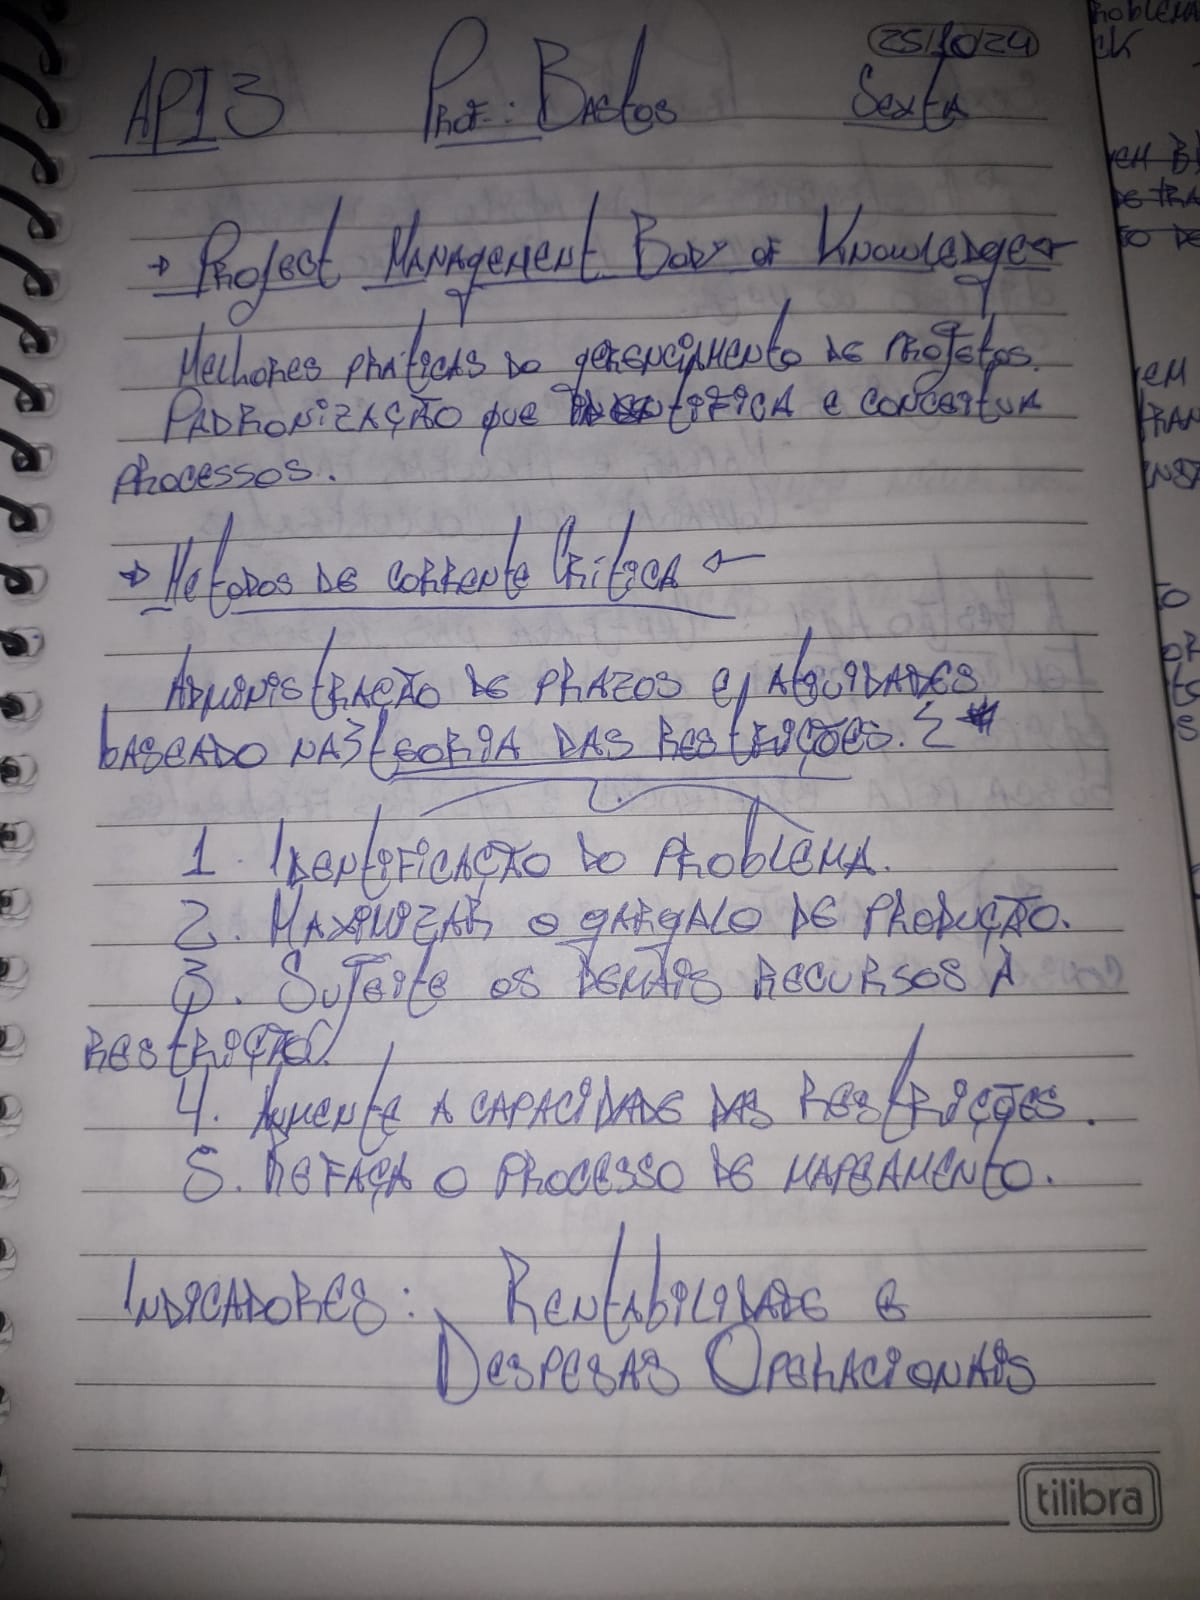 25/10/24
API 3 Prof.: Bastos Sexta
→ Project Management Body of Knowledge ←
Melhores práticas do gerenciamento de projetos.
Padronização que identifica e conceitua
processos.
→ Metodos de corrente crítica ←
Administração de prazos e atividades
baseado na teoria das restrições.
1. Identificação do problema.
2. Maximizar o gargalo de produção.
3. Sujeite os demais recursos à
restrição.
4. Aumente a capacidade das restrições.
5. Refaça o processo de mapeamento.
Indicadores: Rentabilidade e
Despesas Operacionais
tilibra